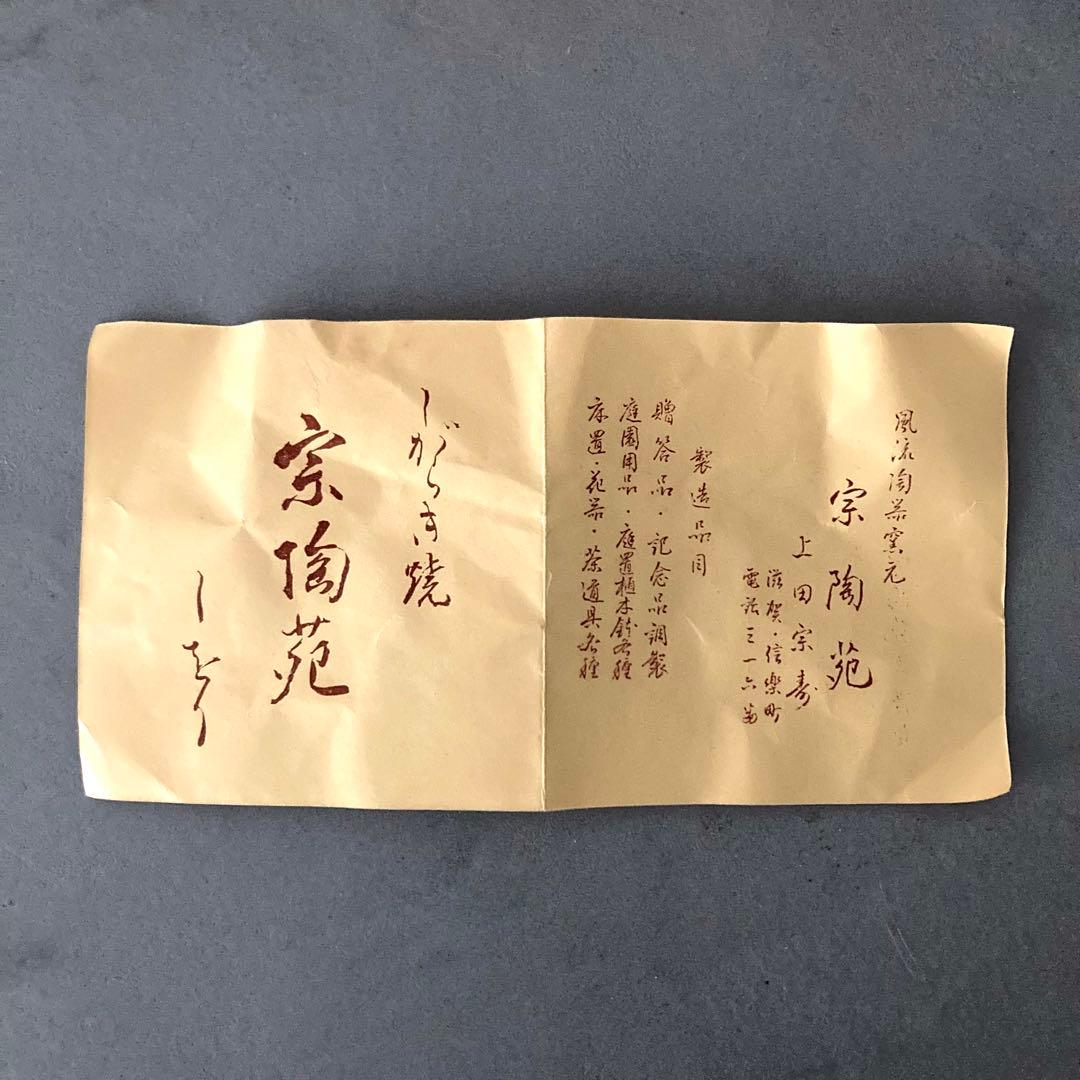 風流陶器窯元
宗陶苑
上田宗寿
滋賀・信楽町
電話三一六番
製造品目
贈答品・記念品調製
庭園用品・庭置植木鉢各種
床置・花器・茶道具各種
しがらき焼
宗陶苑
しをり